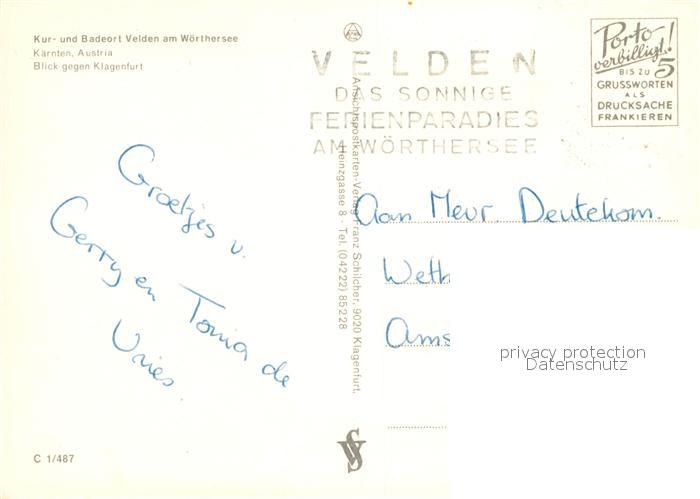 Kur- und Badeort Velden am Wörthersee
Kärnten, Austria
Blick gegen Klagenfurt
VELDEN
DAS SONNIGE
FERIENPARADIES
AM WÖRTHERSEE
Porto-
verbilligt!
BIS ZU 5
GRUSSWORTEN
ALS
DRUCKSACHE
FRANKIEREN
Groetjes v.
Gerry en Tonia de
Vries.
Ansichtspostkarten-Verlag Franz Schilcher, 9020 Klagenfurt.
Heinzgasse 8 · Tel. (04222) 85228
Aan Mevr. Deutekom.
Weth
Ams
privacy protection
Datenschutz
C 1/487